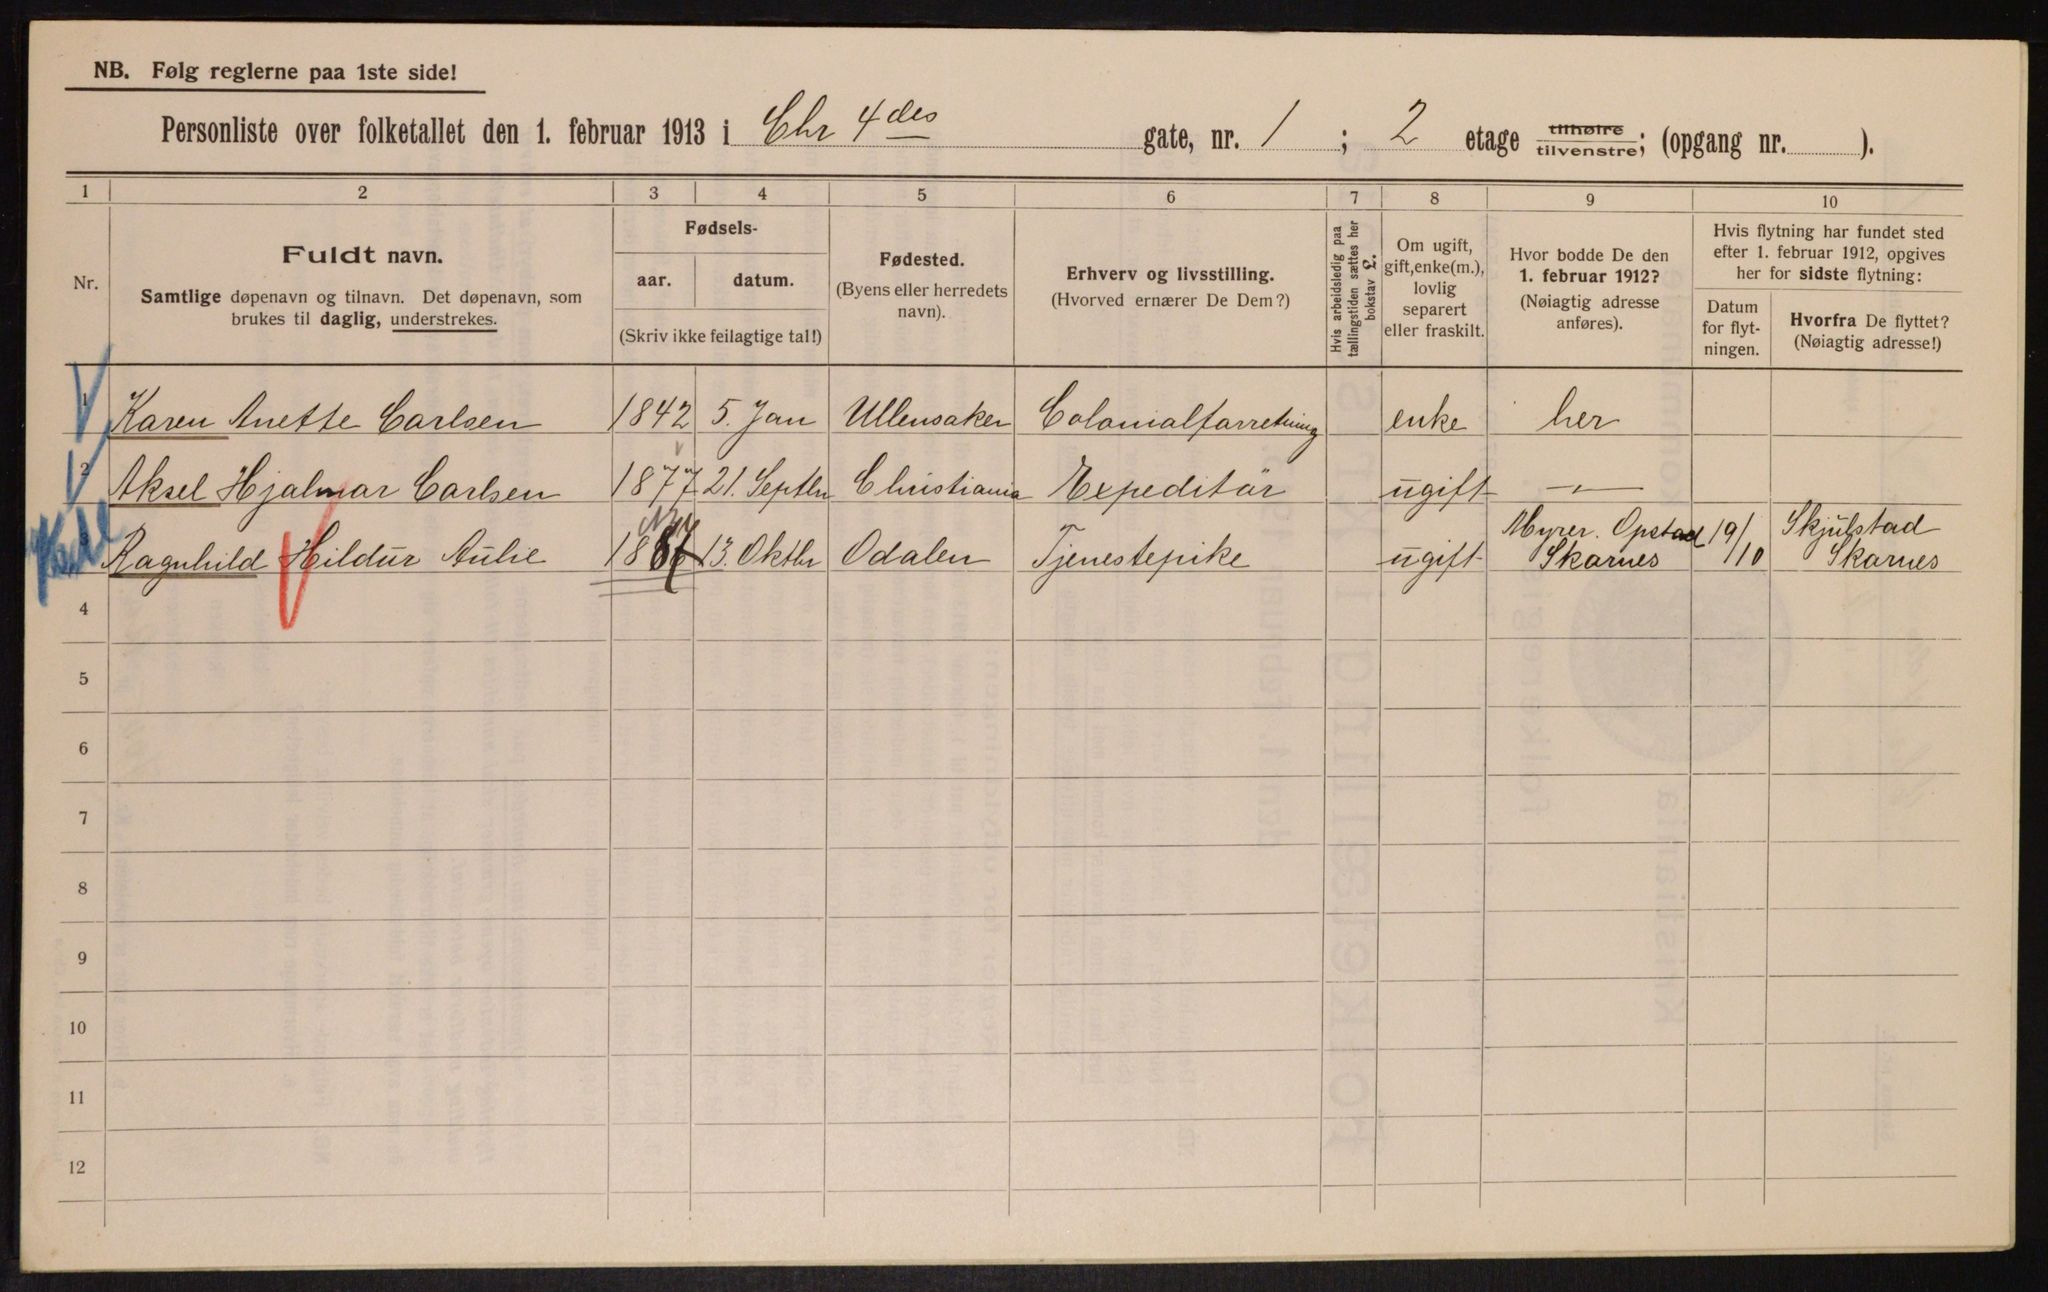 NB. Følg reglerne paa 1ste side!
Personliste over folketallet den 1. februar 1913 i Chr 4des gate, nr. 1 ; 2 etage tilhøire tilvenstre; (opgang nr. ).
1 2 3 4 5 6 7 8 9 10
Nr.
Fuldt navn.
Samtlige døpenavn og tilnavn. Det døpenavn, som
brukes til daglig, understrekes.
Fødsels-
aar. datum.
(Skriv ikke feilagtige tal!)
Fødested.
(Byens eller herredets
navn).
Erhverv og livsstilling.
(Hvorved ernærer De Dem?)
Hvis arbeidsledig paa
tællingstiden sættes her
bokstav L.
Om ugift,
gift, enke(m.),
lovlig
separert
eller fraskilt.
Hvor bodde De den
1. februar 1912?
(Nøiagtig adresse
anføres).
Hvis flytning har fundet sted
efter 1. februar 1912, opgives
her for sidste flytning:
Datum
for flyt-
ningen.
Hvorfra De flyttet?
(Nøiagtig adresse!)
1 Karen Anette Carlsen 1842 5. Jan Ullensaker Colonialforretning enke her
2 Aksel Hjalmar Carlsen 1877 21. Septbr Christiania Expeditør ugift —„—
3 Ragnhild Hildur Aulie 13. Oktbr Odalen Tjenestepike ugift Myrer. Opstad Skarnes 19/10 Skjulstad Skarnes
4
5
6
7
8
9
10
11
12